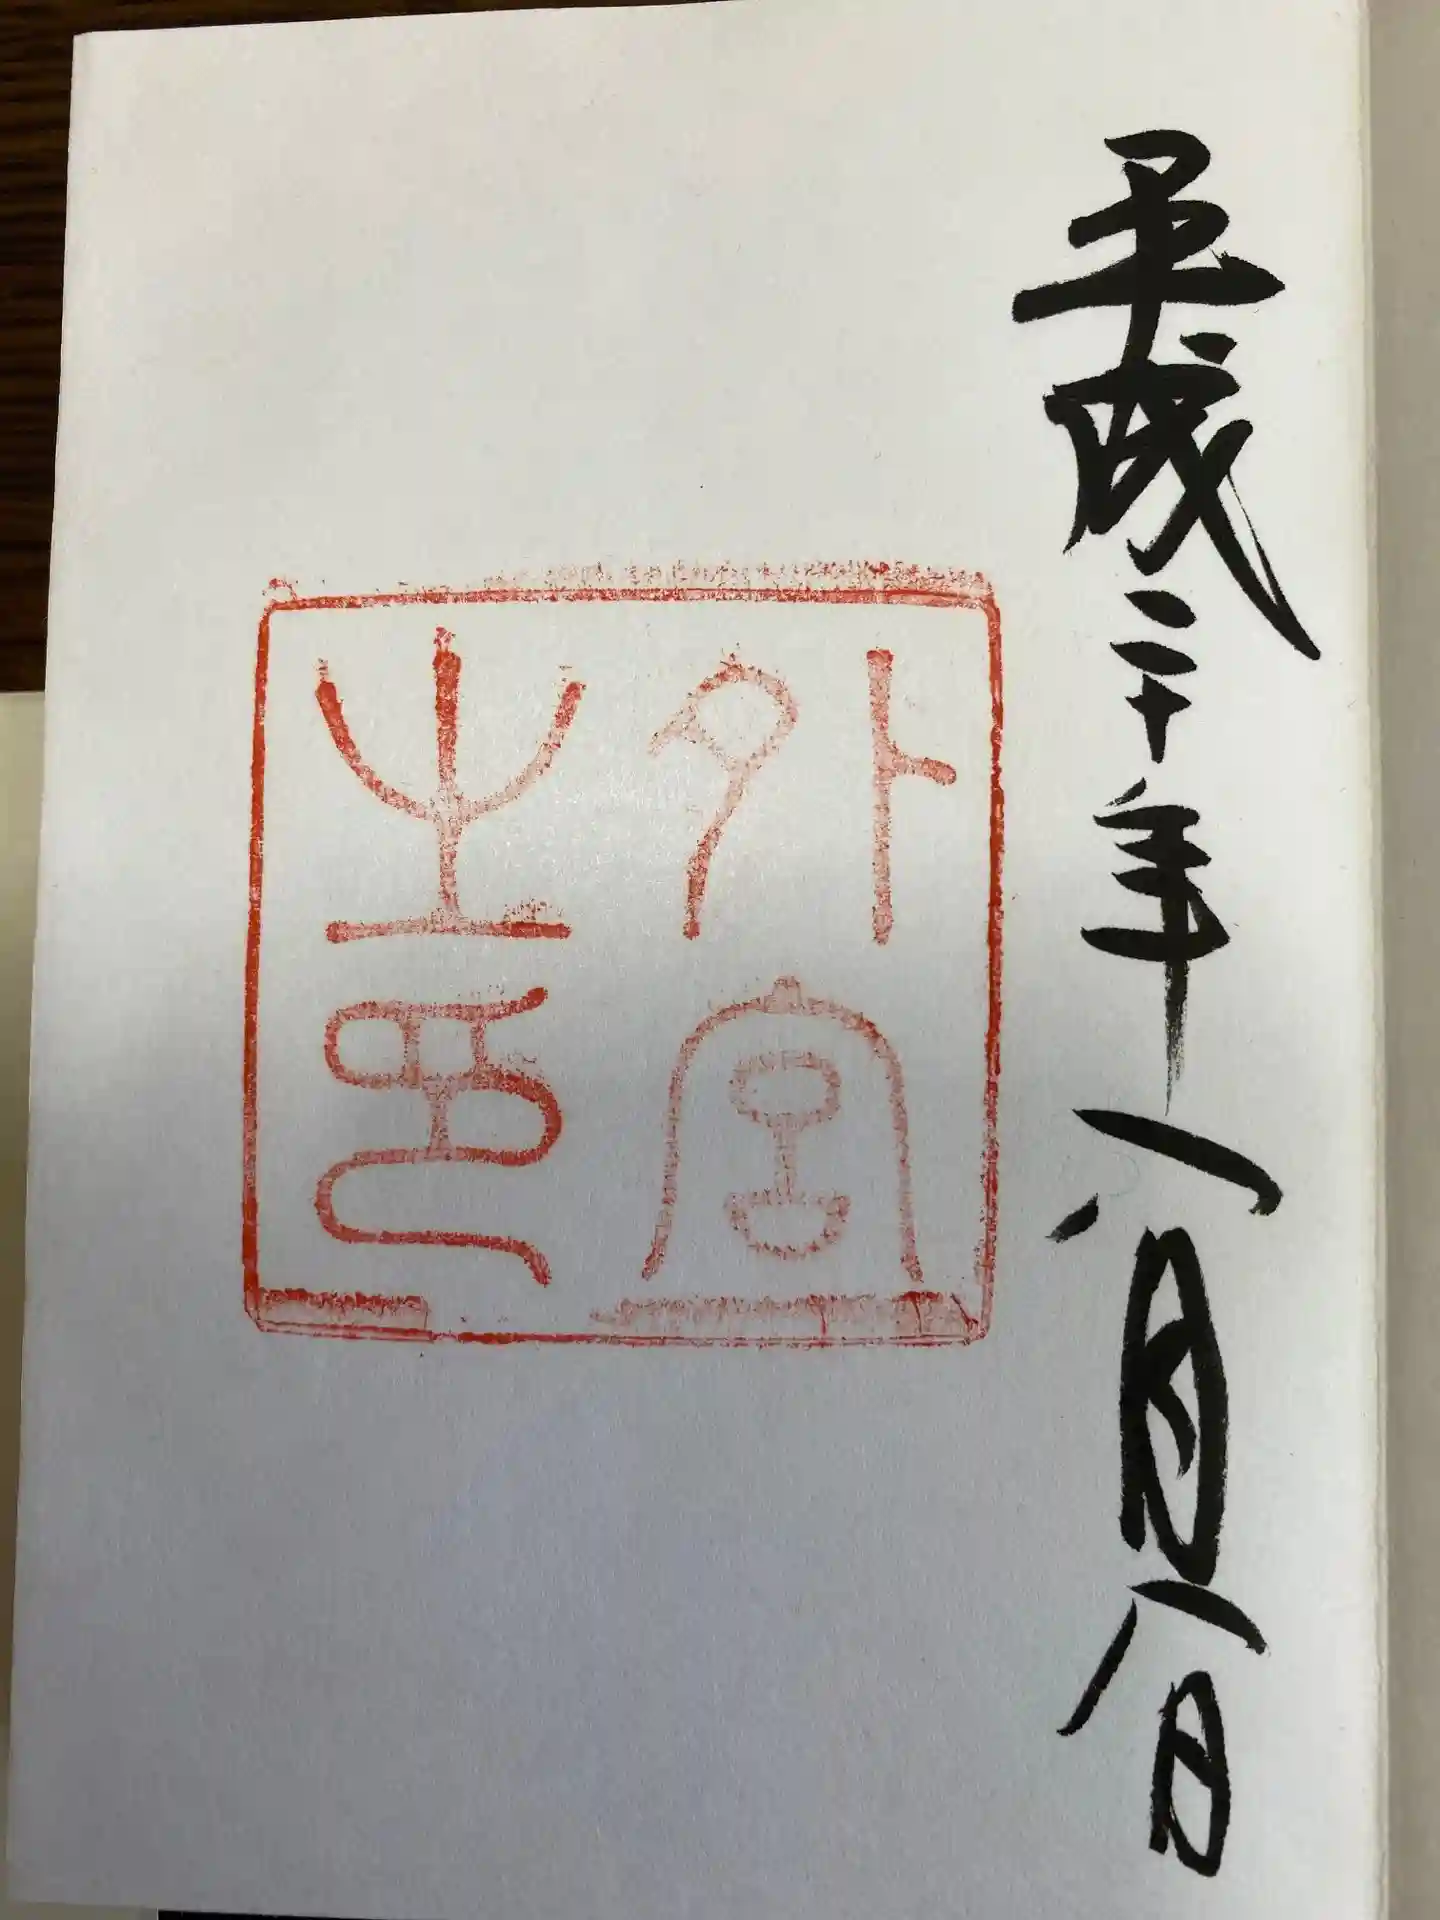 平成二十年八月八日
外宮
之印